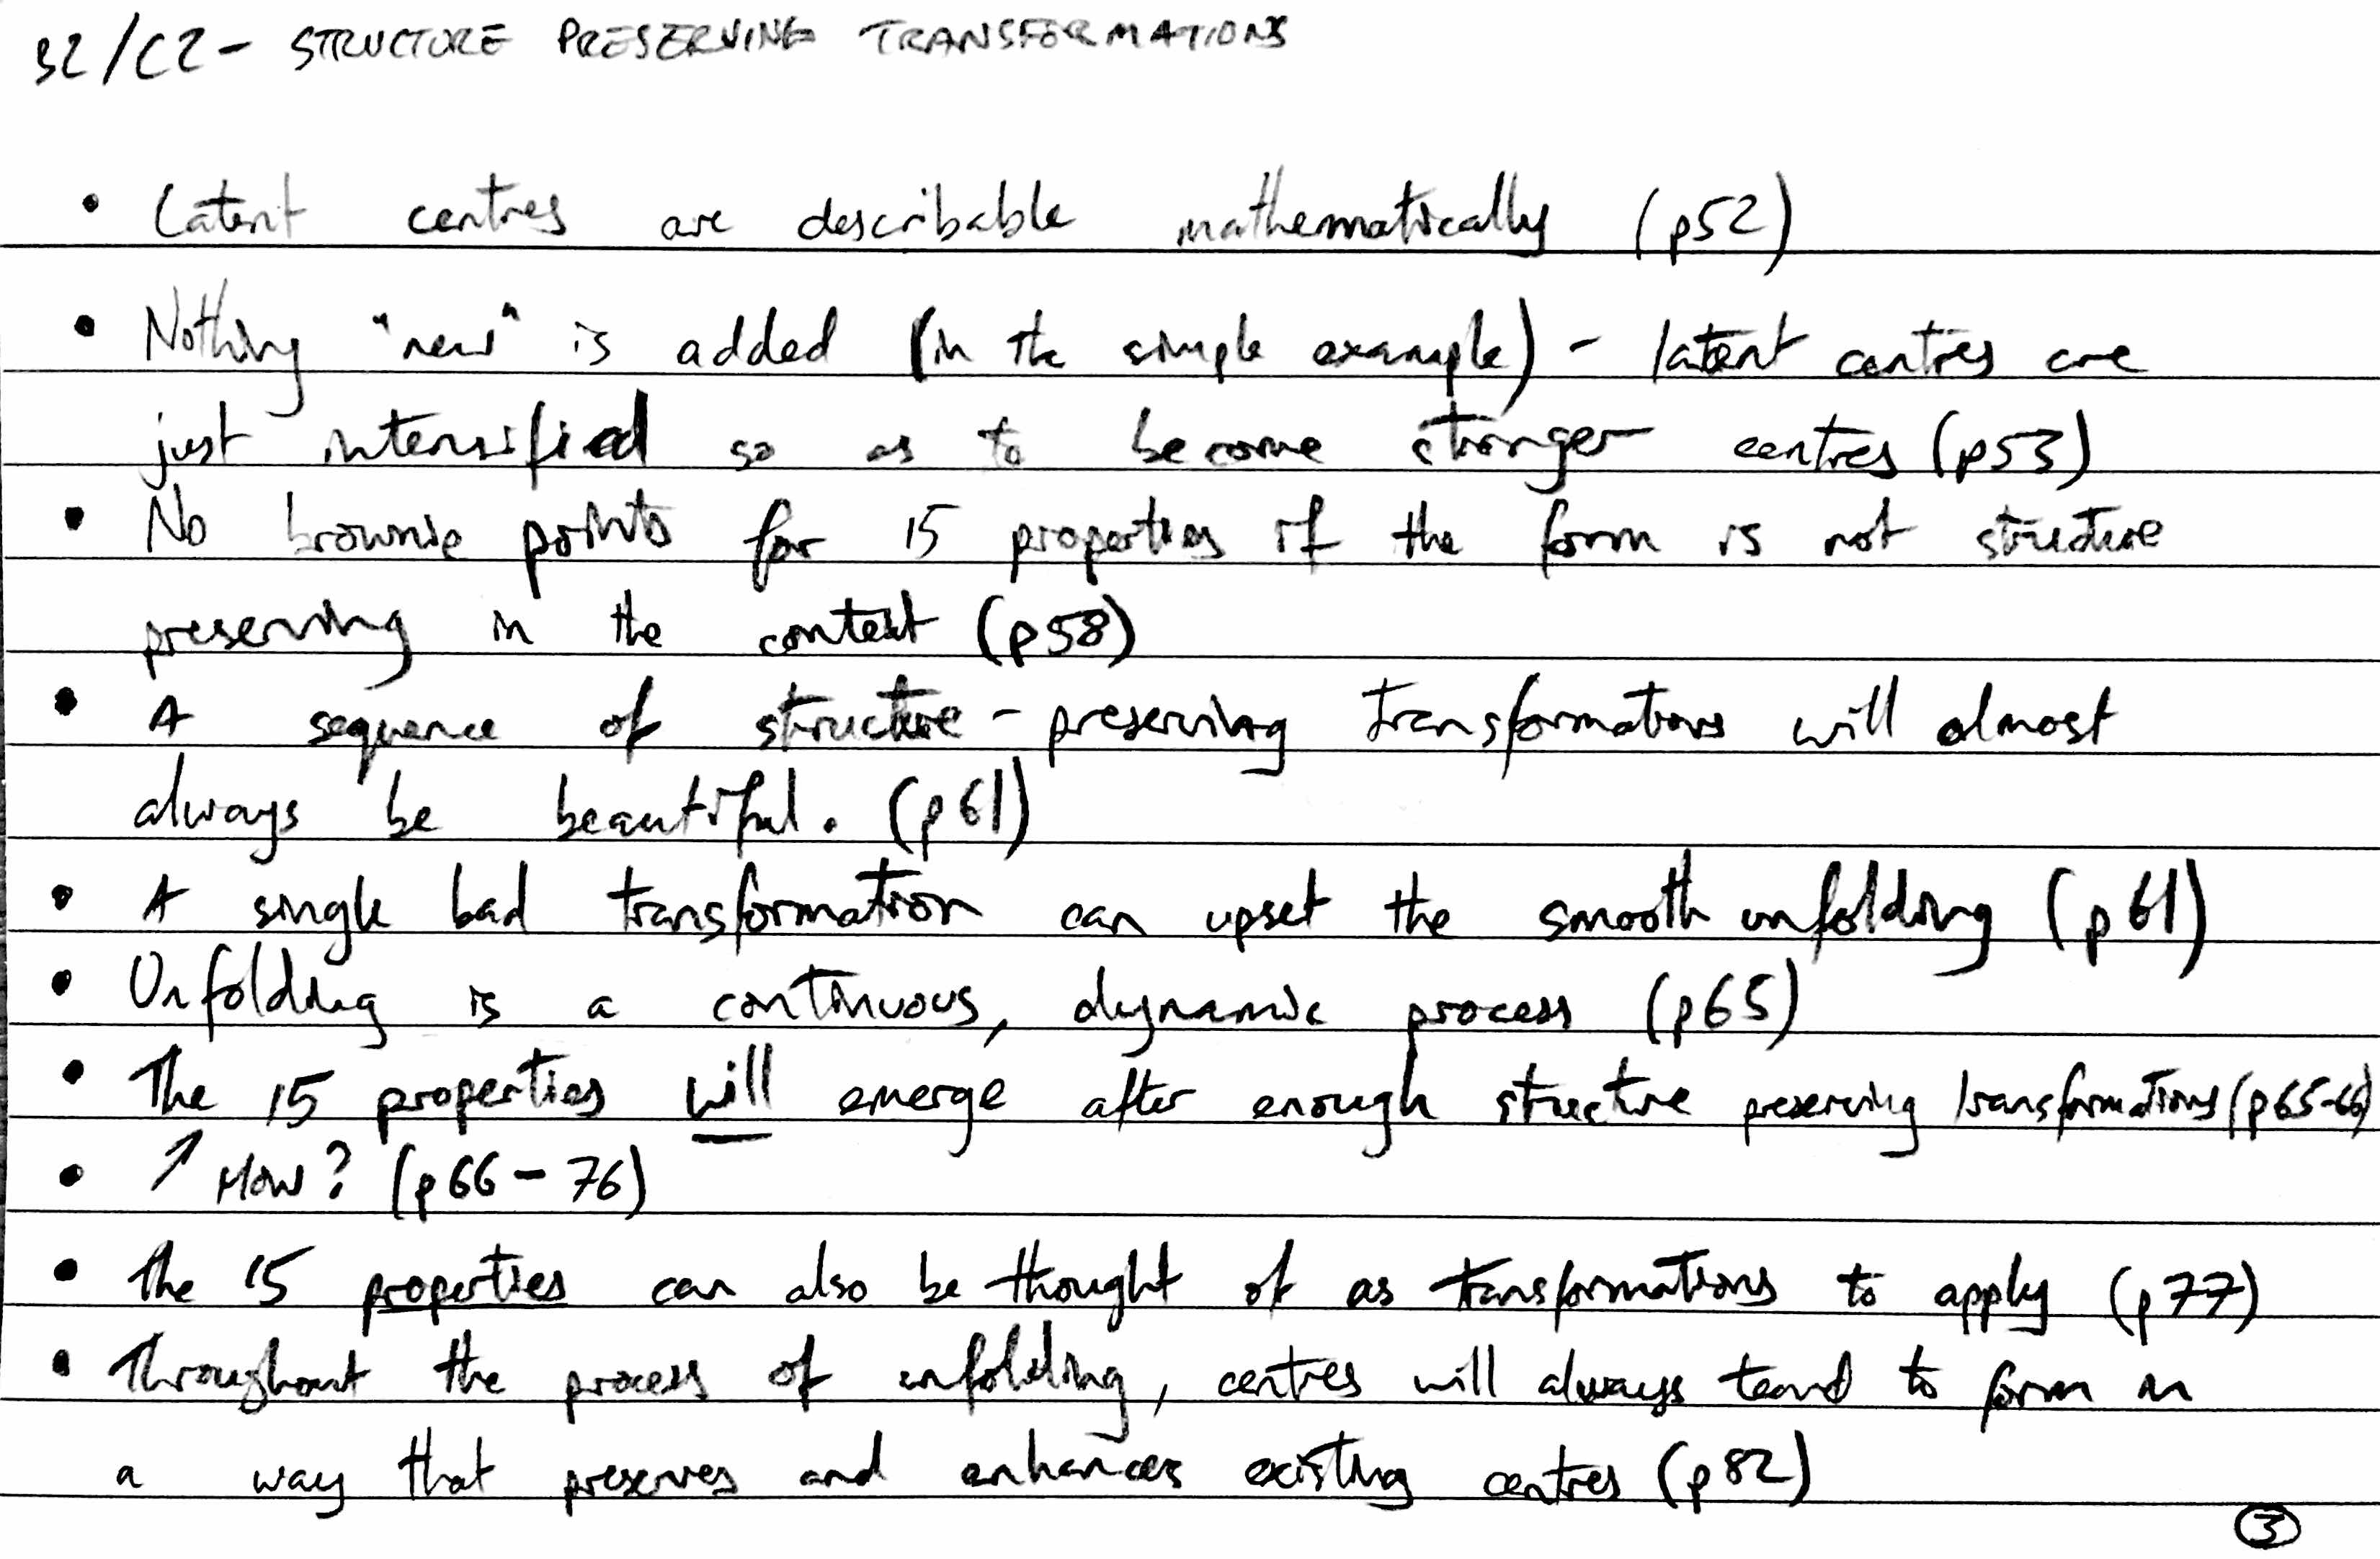 B2/C2 - STRUCTURE PRESERVING TRANSFORMATIONS
• Latent centres are describable mathematically (p52)
• Nothing "new" is added (in the simple example) - latent centres are
just intensified so as to become stronger centres (p53)
• No brownie points for 15 properties if the form is not structure
preserving in the context (p58)
• A sequence of structure-preserving transformations will almost
always be beautiful. (p61)
• A single bad transformation can upset the smooth unfolding (p61)
• Unfolding is a continuous, dynamic process (p65)
• The 15 properties will emerge after enough structure preserving transformations (p65-66)
• ↑ How? (p66-76)
• The 15 properties can also be thought of as transformations to apply (p77)
• Throughout the process of unfolding, centres will always tend to form in
a way that preserves and enhances existing centres (p82)
③